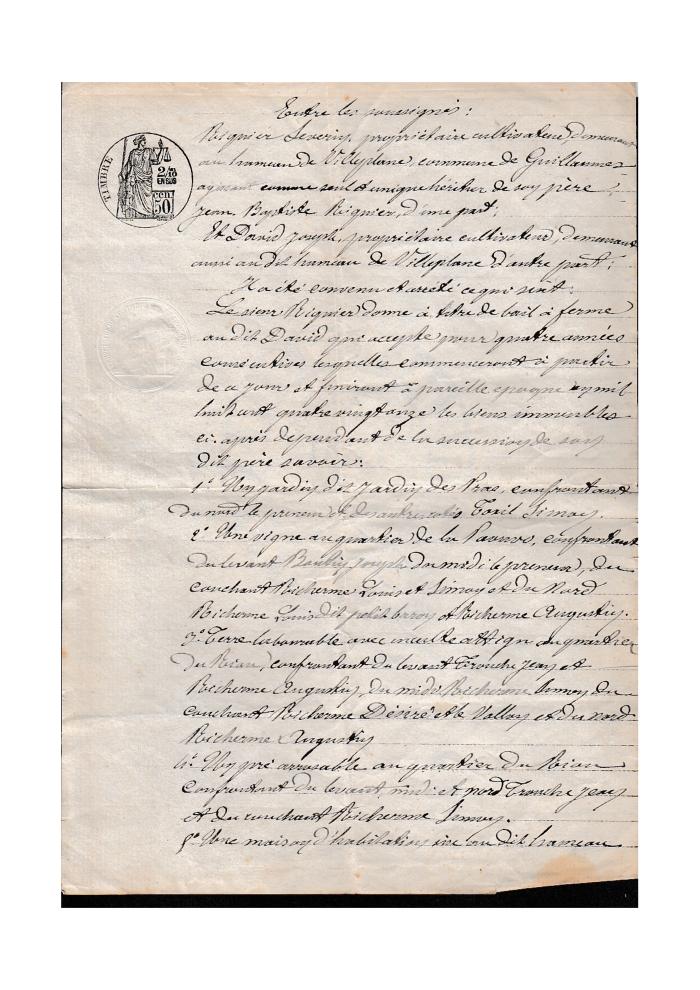 Entre les soussignés :
TIMBRE
2/10
EN SUS
50
CEN
Riquier Severin, propriétaire cultivateur, demeurant
au hameau de Villeplane, commune de Guillaumes
agissant comme seul et unique héritier de son père
Jean Baptiste Riquier, d'une part ;
Et David Joseph, propriétaire cultivateur, demeurant
aussi au dit hameau de Villeplane d'autre part ;
Il a été convenu et arrêté ce qui suit :
Le sieur Riquier donne à titre de bail à ferme
au dit David qui accepte pour quatre années
consécutives lesquelles commenceront à partir
de ce jour et finiront à pareille époque en mil
huit cent quatre vingt onze les biens immeubles
ci-après dependant de la succession de son
dit père savoir :
1° Un jardin dit Jardin des Pras, confrontant
du nord le preneur et des autres cotés Toril Simon.
2° Une vigne au quartier de la confrontant
du levant Joseph du midi le preneur, du
couchant Richerme Louis et Simon et du Nord
Richerme Louis dit petit et Richerme Augustin.
3° Terre labourable avec inculte attigu au quartier
du Riou, confrontant du levant Tronche Jean et
Richerme Augustin, du midi Richerme Simon du
couchant Richerme Désiré et le Vallon et du nord
Richerme Augustin
4° Un pré arrosable au quartier du Riou
confrontant du levant midi et nord Tronche Jean
et du couchant Richerme Simon.
5° Une maison d'habitation sise au dit hameau